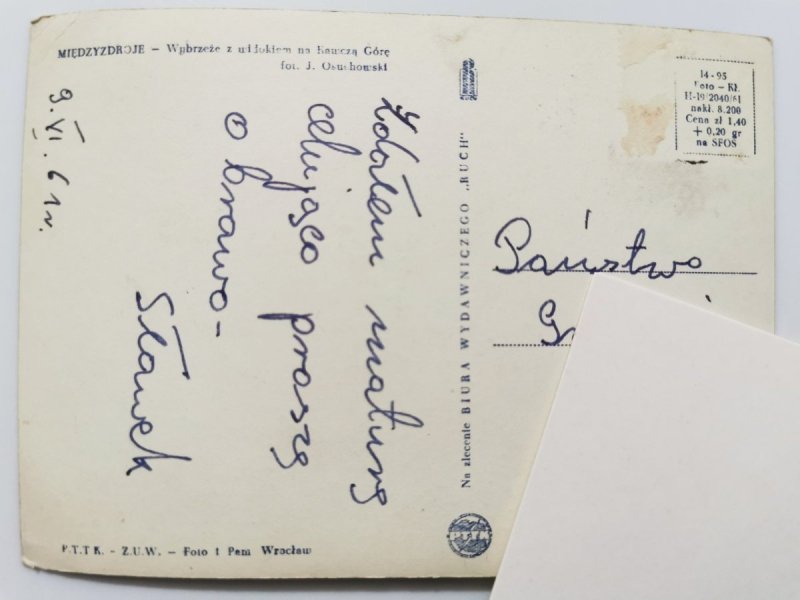 MIĘDZYZDROJE – Wybrzeże z widokiem na Kawczą Górę
fot. J. Osuchowski
9.VI.61r.
Zdałem maturę
celująco proszę
o brawo-
Sławek
P.T.T.K. - Z.U.W. – Foto 1 Pam Wrocław
Na zlecenie BIURA WYDAWNICZEGO „RUCH"
14-95
Foto – Kł.
H-19/2040/61
nakł. 8.200
Cena zł 1,40
+ 0,20 gr
na SFOS
Państwo